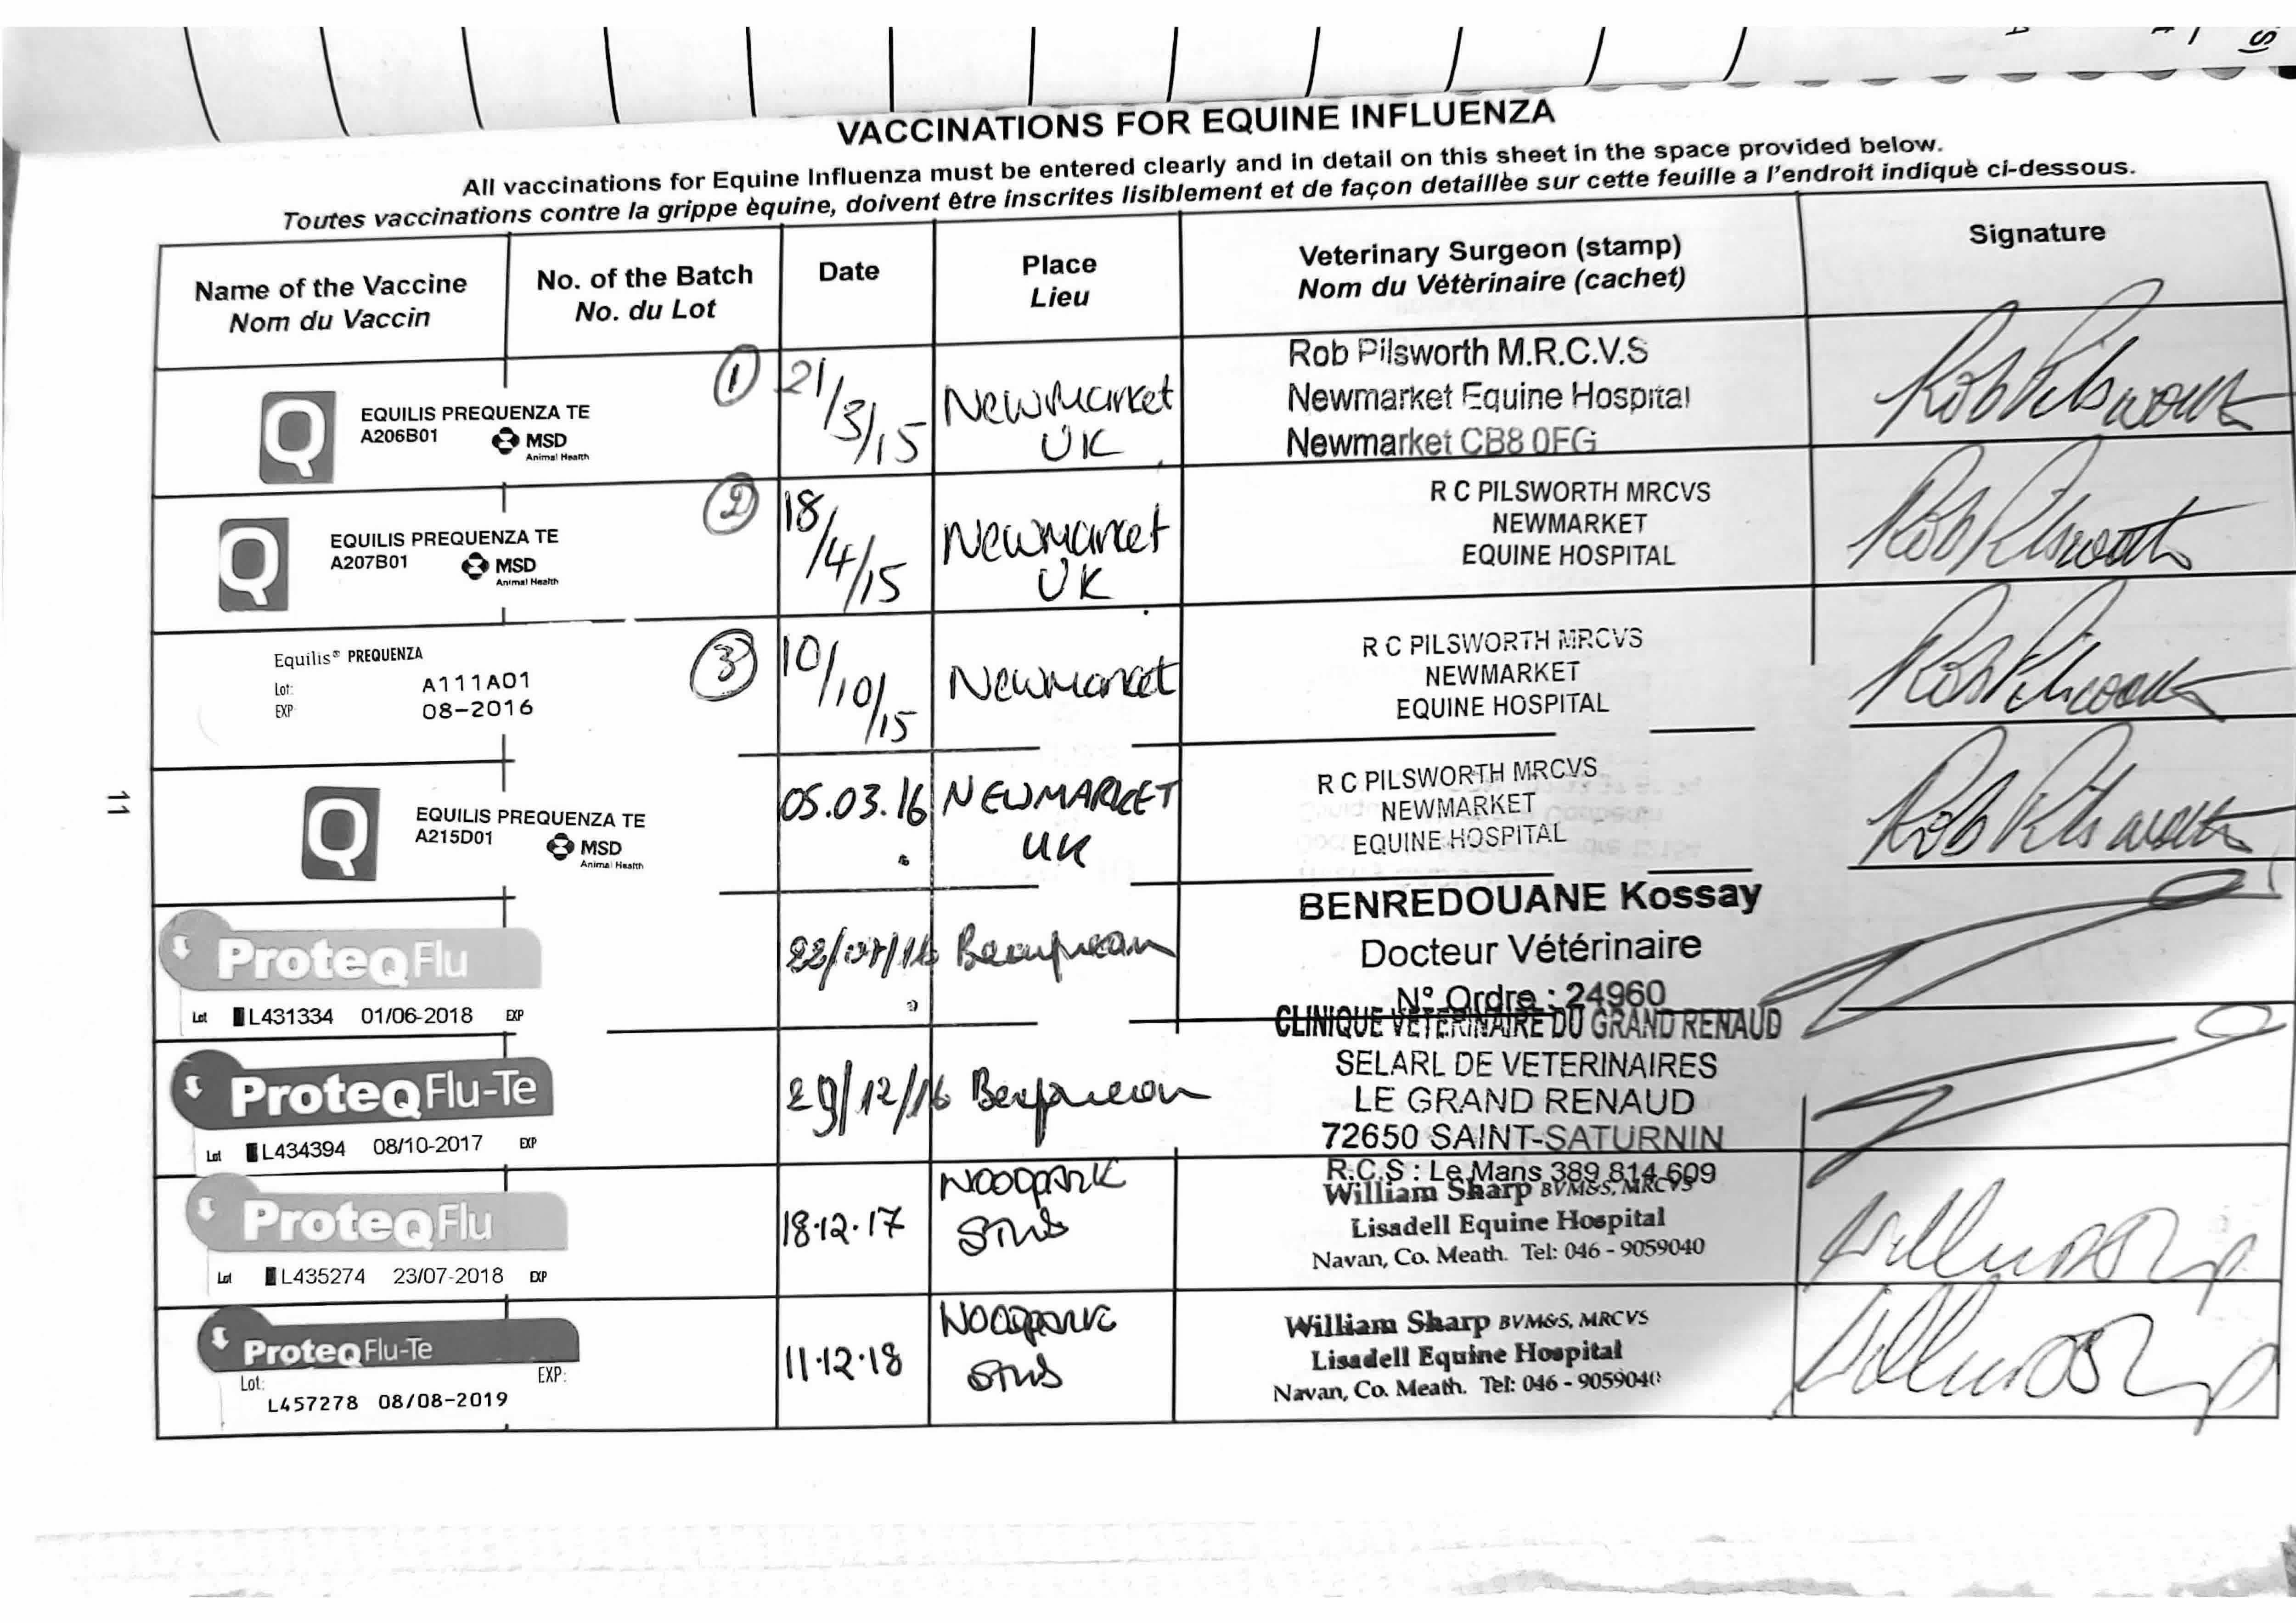 VACCINATIONS FOR EQUINE INFLUENZA
All vaccinations for Equine Influenza must be entered clearly and in detail on this sheet in the space provided below.
Toutes vaccinations contre la grippe èquine, doivent être inscrites lisiblement et de façon detaillèe sur cette feuille a l'endroit indiquè ci-dessous.
Name of the Vaccine
Nom du Vaccin
No. of the Batch
No. du Lot
Date
Place
Lieu
Veterinary Surgeon (stamp)
Nom du Vètèrinaire (cachet)
Signature
Q
EQUILIS PREQUENZA TE
A206B01
MSD
Animal Health
1
21/3/15
Newmarket
UK
Rob Pilsworth M.R.C.V.S
Newmarket Equine Hospital
Newmarket CB8 0FG
Rob Pilsworth
Q
EQUILIS PREQUENZA TE
A207B01
MSD
Animal Health
2
18/4/15
Newmarket
UK
R C PILSWORTH MRCVS
NEWMARKET
EQUINE HOSPITAL
Rob Pilsworth
Equilis® PREQUENZA
Lot: A111A01
EXP 08-2016
3
10/10/15
Newmarket
R C PILSWORTH MRCVS
NEWMARKET
EQUINE HOSPITAL
Rob Pilsworth
Q
EQUILIS PREQUENZA TE
A215D01
MSD
Animal Health
05.03.16
NEWMARKET
UK
R C PILSWORTH MRCVS
NEWMARKET
EQUINE HOSPITAL
Rob Pilsworth
ProteqFlu
Lot L431334 01/06-2018 EXP
BENREDOUANE Kossay
Docteur Vétérinaire
N° Ordre : 24960
ProteqFlu-Te
Lot L434394 08/10-2017 EXP
29/12/16
CLINIQUE VETERINAIRE DU GRAND RENAUD
SELARL DE VETERINAIRES
LE GRAND RENAUD
72650 SAINT-SATURNIN
R.C.S : Le Mans 389 814 609
ProteqFlu
Lot L435274 23/07-2018 EXP
18.12.17
William Sharp BVM&S, MRCVS
Lisadell Equine Hospital
Navan, Co. Meath. Tel: 046 - 9059040
ProteqFlu-Te
Lot: EXP:
L457278 08/08-2019
11.12.18
William Sharp BVM&S, MRCVS
Lisadell Equine Hospital
Navan, Co. Meath. Tel: 046 - 9059040
11